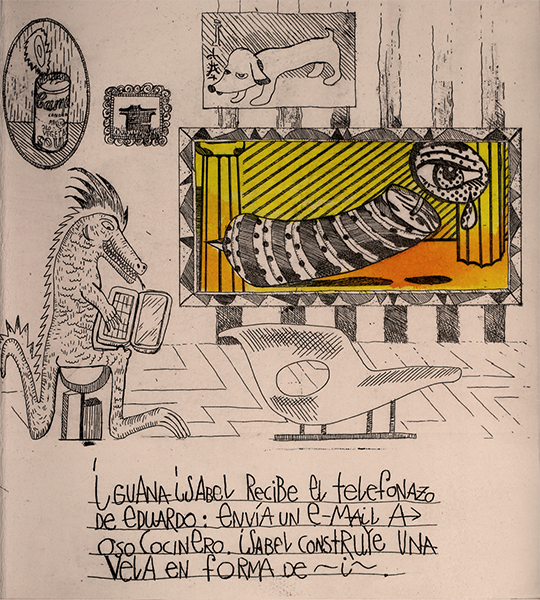 SOUP
iGUANA iSABEL RECIBE EL tELEFONAZO
DE EDUARDO: ENVÍA UN E-MAIL A→
OSO COCINERO. iSABEL CONSTRUYE UNA
VELA EN FORMA DE ~i~.